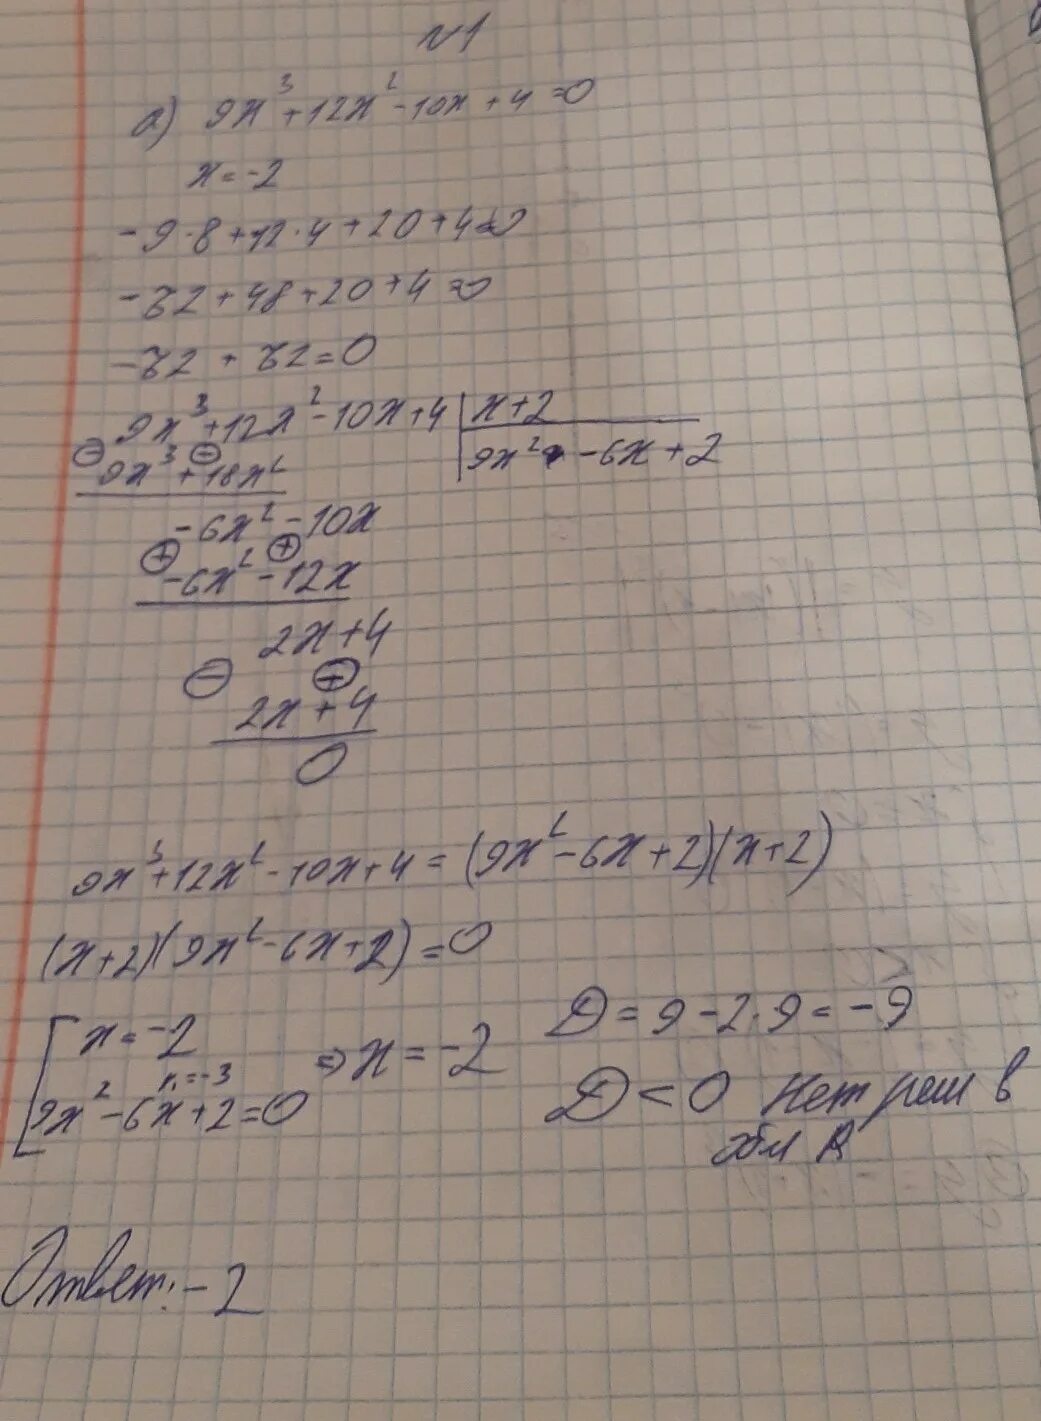 №1
а) 9x³+12x²-10x+4=0
x=-2
-9·8+12·4+20+4=0
-72+48+20+4=0
-72+72=0
9x³+12x²-10x+4 | x+2
⊖ 9x³ ⊖ +18x² | 9x² -6x+2
-6x²-10x
⊕ ⊕
-6x²-12x
2x+4
⊖ ⊖
2x+4
0
9x³+12x²-10x+4=(9x²-6x+2)(x+2)
(x+2)(9x²-6x+2)=0
[ x=-2
к₁=-3
9x²-6x+2=0
⇒ x=-2
D=9-2·9=-9
D<0 Нет реш в
обл R
Ответ: -2